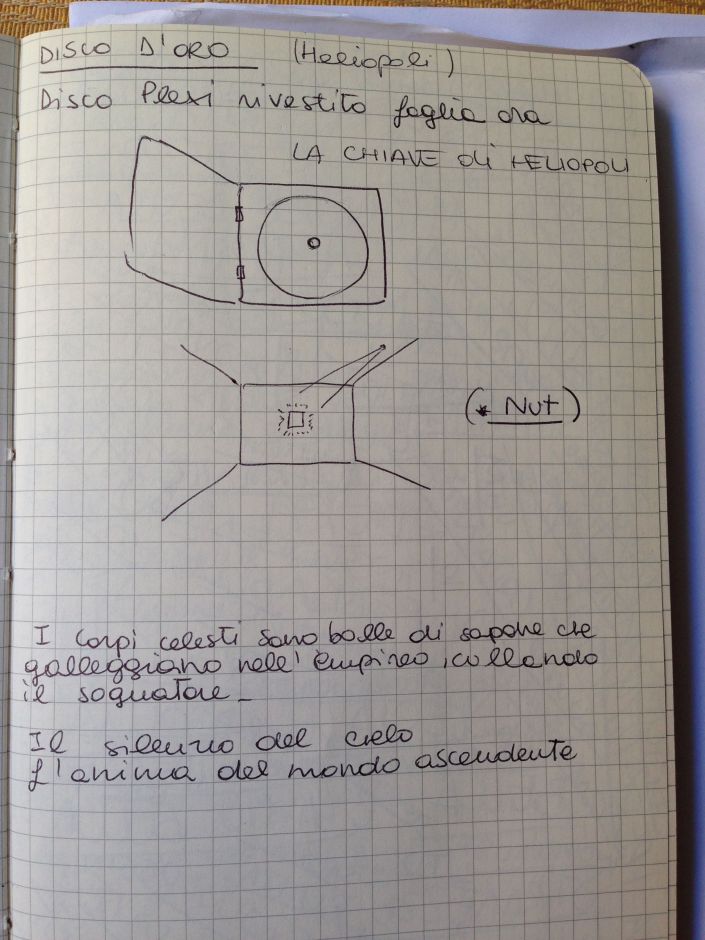 DISCO D'ORO (Heliopoli)
Disco Plexi rivestito foglia oro
LA CHIAVE di HELIOPOLI
(* Nut)
I corpi celesti sono bolle di sapone che
galleggiano nell'empireo, cullando
il sognatore_
Il silenzio del cielo
L'anima del mondo ascendente